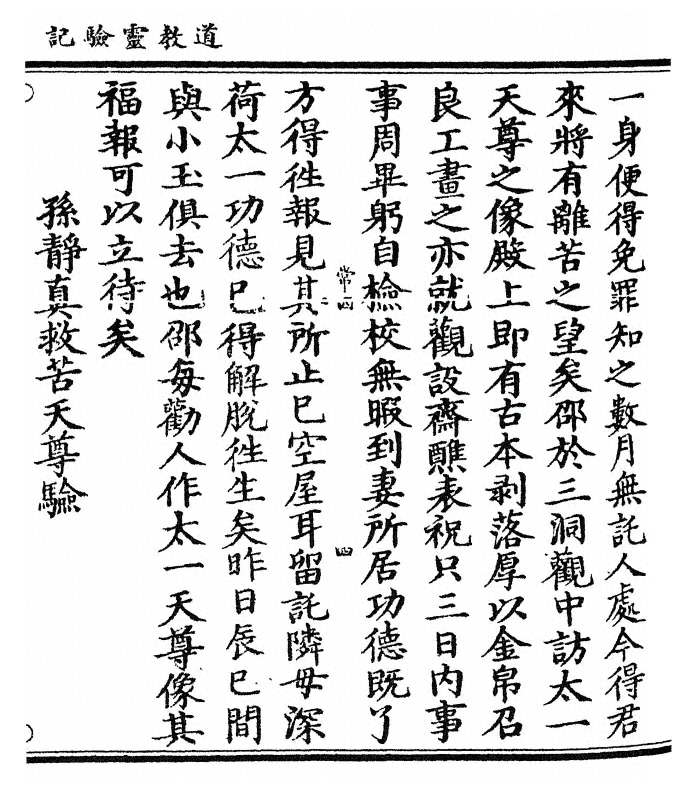 道教靈驗記
一身便得免罪知之數月無託人處今得君
來將有離苦之望矣邵於三洞觀中訪太一
天尊之像殿上即有古本剥落厚以金帛召
良工畫之亦就觀設齋醮表祝只三日内事
事周畢躬自檢校無暇到妻所居功德既了
方得徃報見其所止巳空屋耳留託隣母深
荷太一功德巳得解脫徃生矣昨日辰巳間
與小玉俱去也邵每勸人作太一天尊像其
福報可以立待矣
孫靜真救苦天尊驗
常四
四